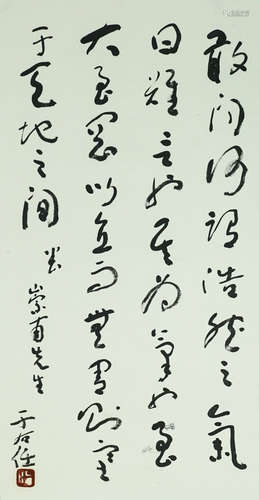 敢问何谓浩然之氣
曰难言也其为氣也至
大至刚以直养而無害则塞
于天地之间
崇甫先生
于右任